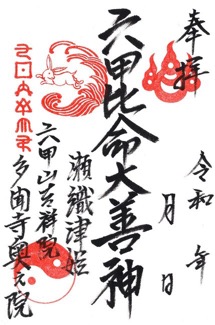 奉拝
令和　年
月　日
六甲比命大善神
瀬織津姫
六甲山吉祥院
多聞寺奥之院